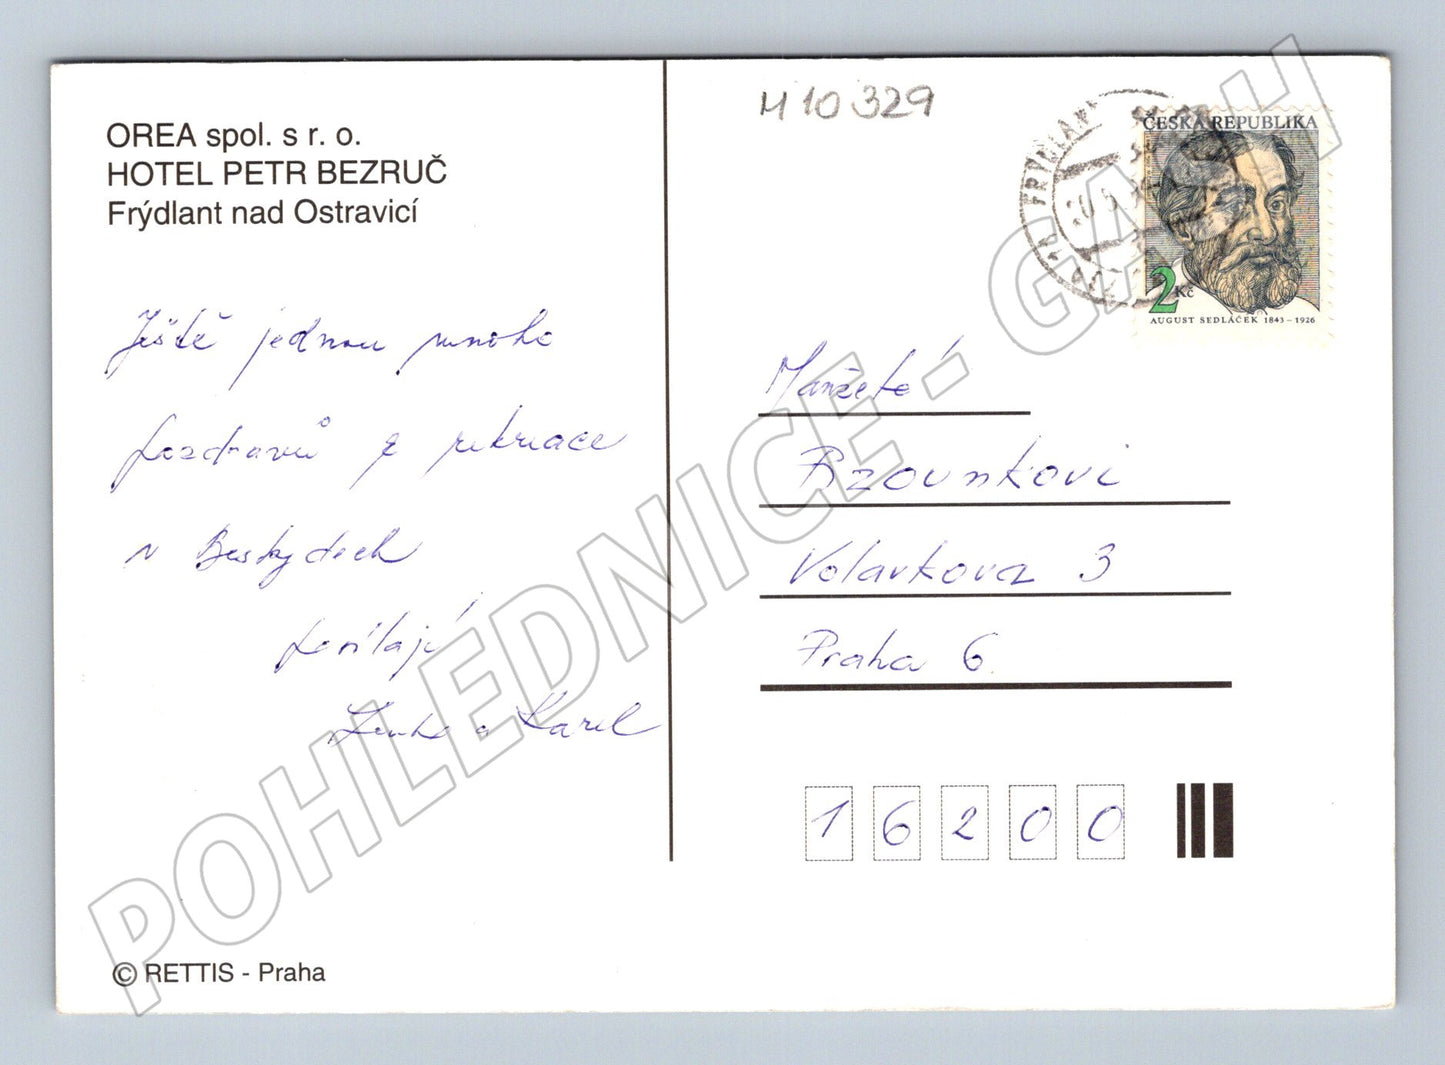 OREA spol. s r. o.
HOTEL PETR BEZRUČ
Frýdlant nad Ostravicí
Ještě jednou mnoho
pozdravů z rekreace
v Beskydech
posílají
Zenk a Karel
© RETTIS - Praha
M10329
FRÝDLANT
ČESKÁ REPUBLIKA
2 Kč
AUGUST SEDLÁČEK 1843 – 1926
Manželé
Brounkovi
Volavkova 3
Praha 6
16200
POHLEDNICE - GASH